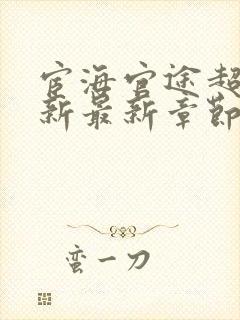 宦海官途超
新最新章节
蛮一刀